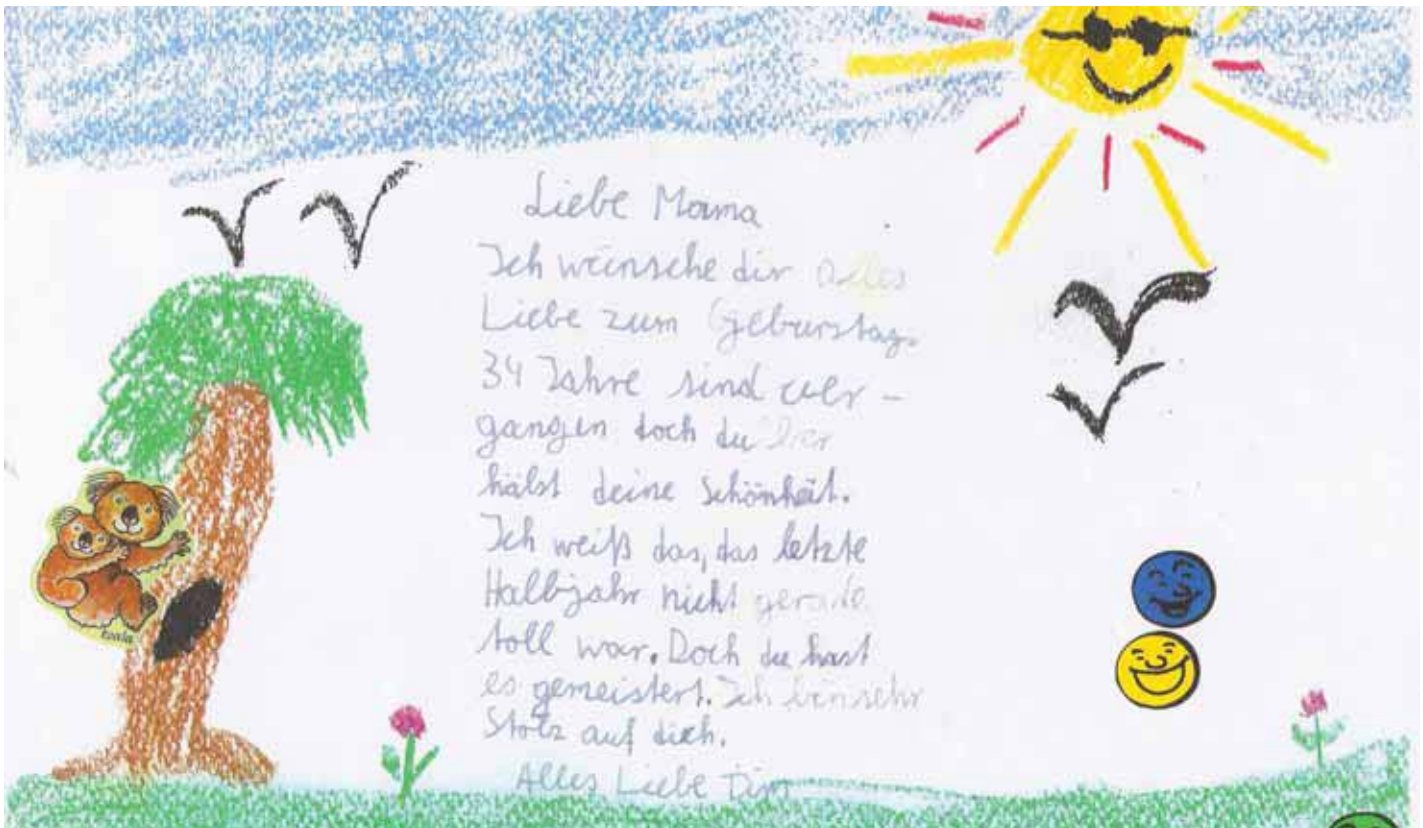 Liebe Mama
Ich wünsche dir alles
Liebe zum Geburstag.
34 Jahre sind ver-
gangen doch du ber
hälst deine Schönheit.
Ich weiß das, das letzte
Halbjahr nicht gerade
toll war. Doch du hast
es gemeistert. Ich bin sehr
Stolz auf dich.
Alles Liebe Tim
koala